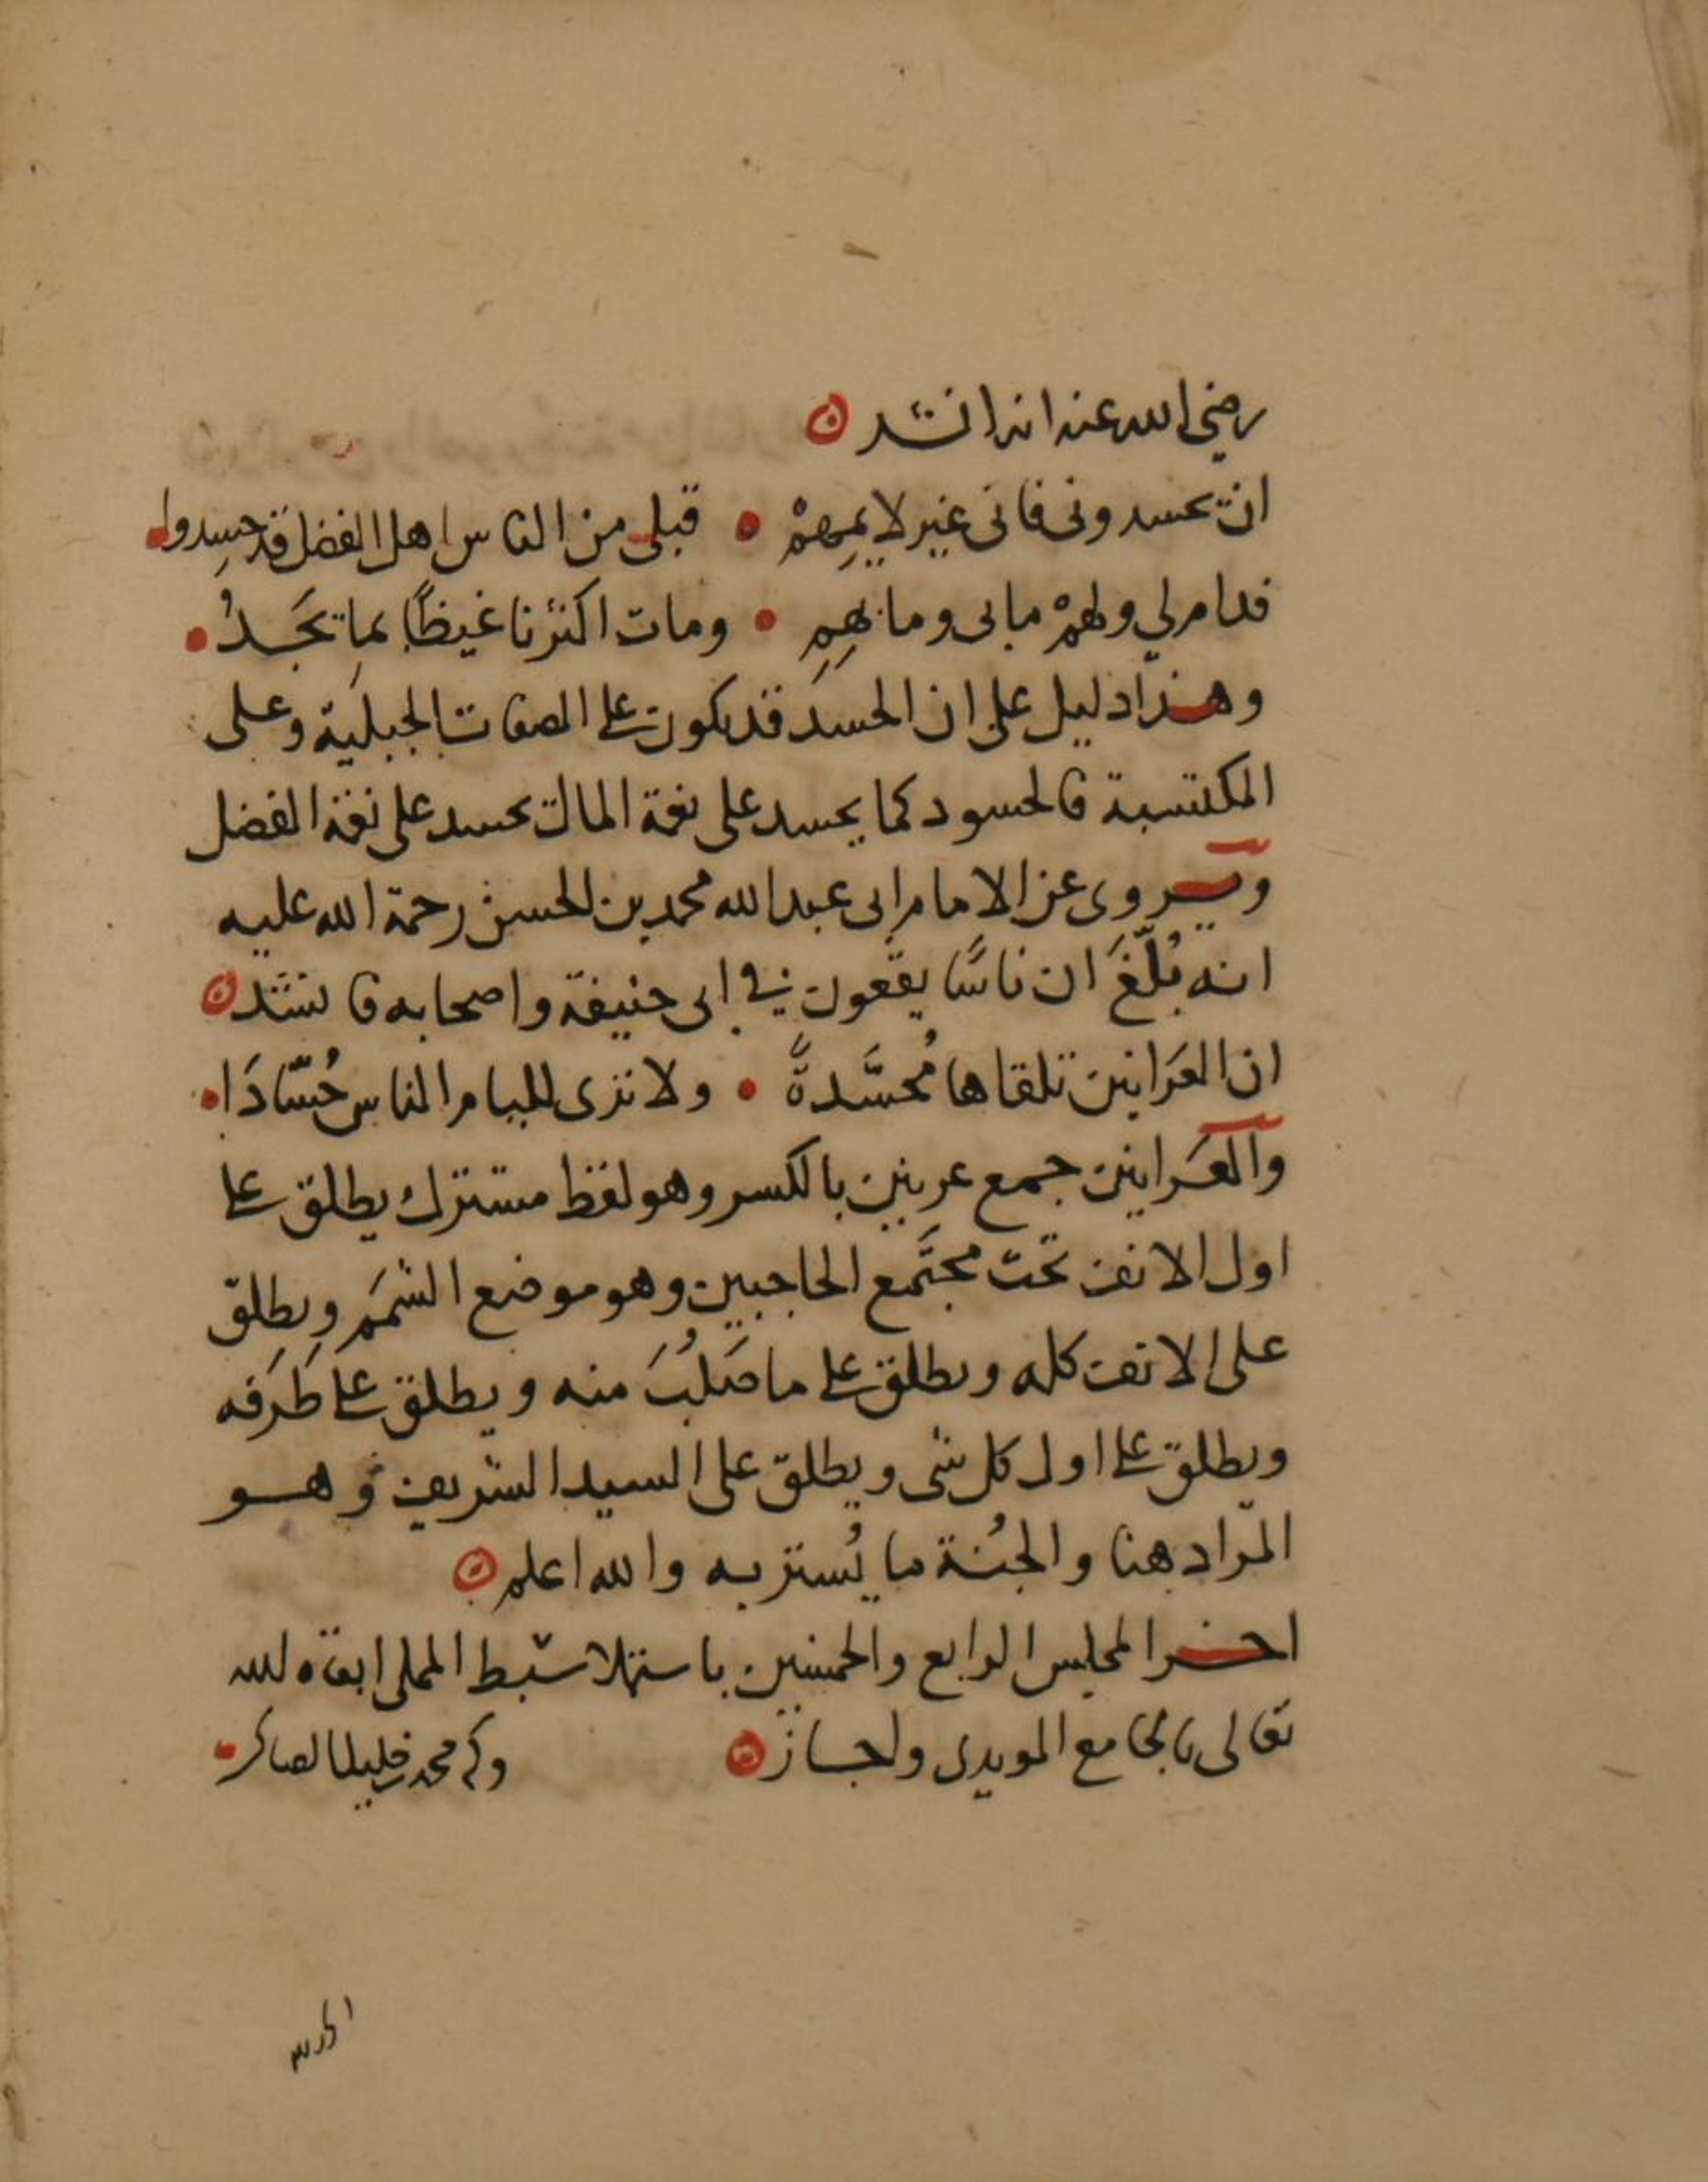 رضي الله عنه انه انشد
ان تحسدوني فاني غير لايمهم قبلي من الناس اهل الفضل قد حسدوا
فدام لي ولهم مابي ومابهم ومات اكثرنا غيظا بما يجد
وهذا دليل على ان الحسد قد يكون على الصفات الجبلية وعلى
المكتسبة فالحسود كما يحسد على نعمة المال يحسد على نعمة الفضل
ويروى عن الامام ابي عبد الله محمد بن الحسن رحمة الله عليه
انه بُلِّغَ ان ناسًا يقعون في ابي حنيفة واصحابه فانشد
ان العرانين تلقاها مُحسَّدةً ولا ترى للئام الناس حُسّادَا
والعَرانين جمع عرنين بالكسر وهو لفظ مشترك يطلق على
اول الانف تحت مجتَمع الحاجبين وهو موضع الشمَم ويطلق
على الانف كله ويطلق على ما صَلُبَ منه ويطلق على طَرَفه
ويطلق على اول كل شى ويطلق على السيد الشريف وهو
المراد هنا والجُنة ما يُستتر به والله اعلم
اخر المجلس الرابع والخمسين باستملا سبط المملي ابقاه الله
تعالى بالجامع المويدى واجاز